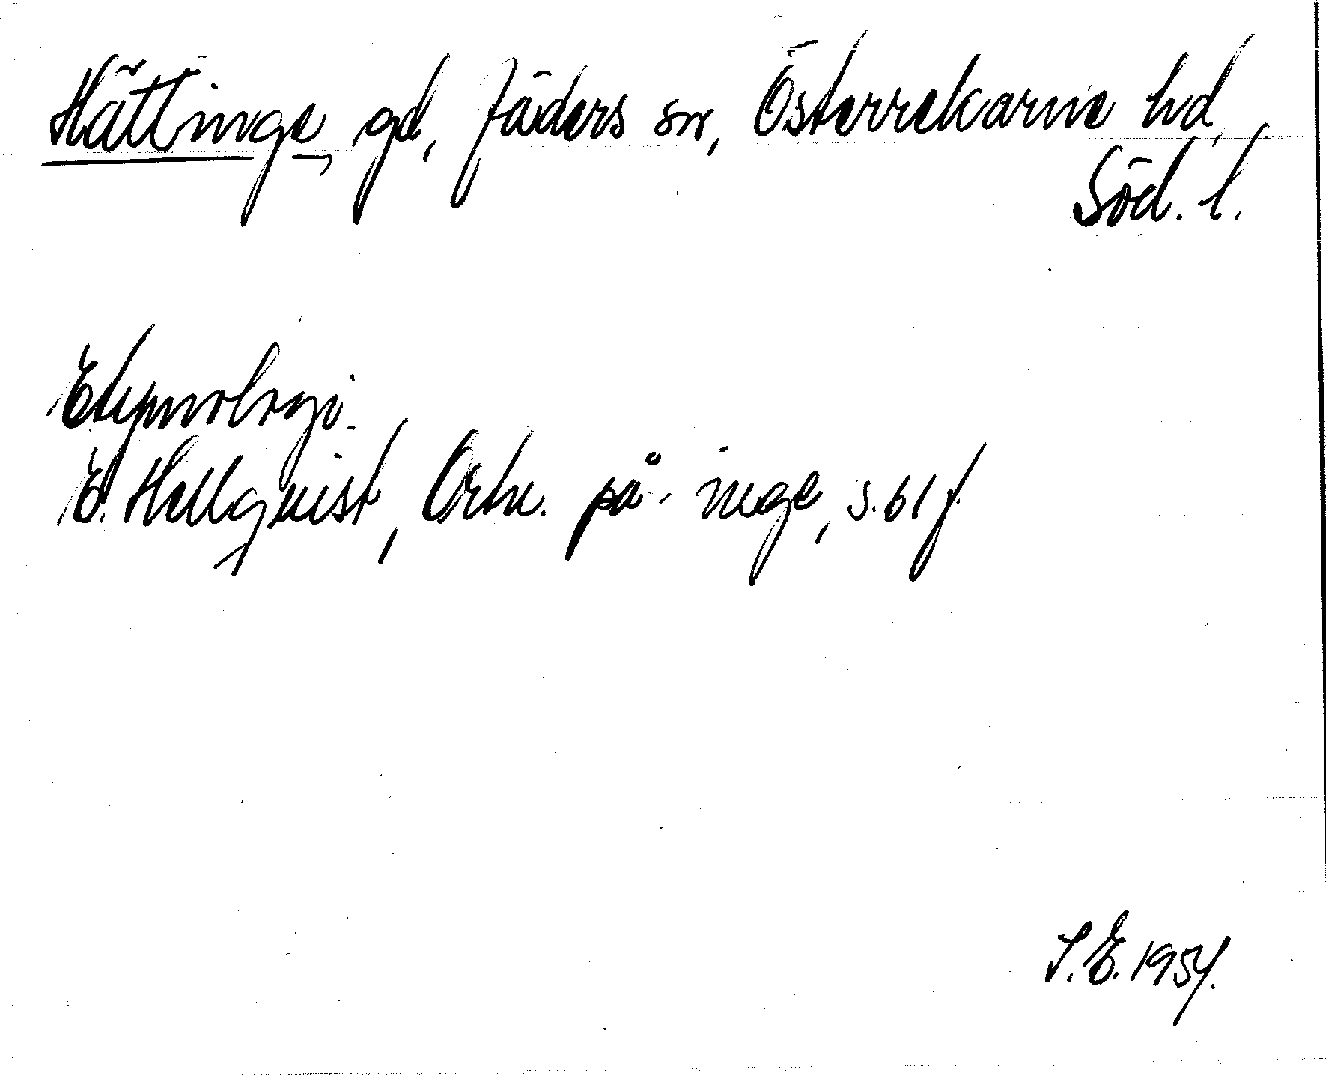 Hättinge, gd, Jäders sn, Österrekarne hd,
Söd. l.
Etymologi.
E. Hellquist, Ortn. på -inge, s. 61 f.
S. E. 1954.